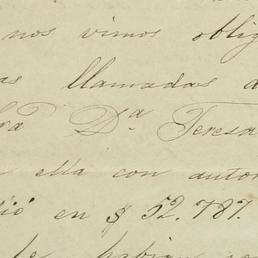 nos vimos oblig
as llamadas a
ra Dª Teresa
ella con autor
dió en $ 52.787.